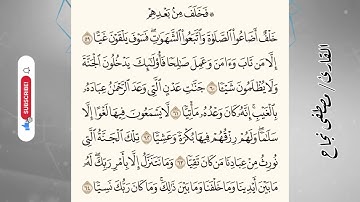 ۞ فَخَلَفَ مِنۢ بَعۡدِهِمۡ
خَلۡفٌ أَضَاعُواْ ٱلصَّلَوٰةَ وَٱتَّبَعُواْ ٱلشَّهَوَٰتِۖ فَسَوۡفَ يَلۡقَوۡنَ غَيًّا ٥٩
إِلَّا مَن تَابَ وَءَامَنَ وَعَمِلَ صَٰلِحٗا فَأُوْلَٰٓئِكَ يَدۡخُلُونَ ٱلۡجَنَّةَ
وَلَا يُظۡلَمُونَ شَيۡـٔٗا ٦٠ جَنَّٰتِ عَدۡنٍ ٱلَّتِي وَعَدَ ٱلرَّحۡمَٰنُ عِبَادَهُۥ
بِٱلۡغَيۡبِۚ إِنَّهُۥ كَانَ وَعۡدُهُۥ مَأۡتِيّٗا ٦١ لَّا يَسۡمَعُونَ فِيهَا لَغۡوًا إِلَّا
سَلَٰمٗاۖ وَلَهُمۡ رِزۡقُهُمۡ فِيهَا بُكۡرَةٗ وَعَشِيّٗا ٦٢ تِلۡكَ ٱلۡجَنَّةُ ٱلَّتِي
نُورِثُ مِنۡ عِبَادِنَا مَن كَانَ تَقِيّٗا ٦٣ وَمَا نَتَنَزَّلُ إِلَّا بِأَمۡرِ رَبِّكَۖ لَهُۥ
مَا بَيۡنَ أَيۡدِينَا وَمَا خَلۡفَنَا وَمَا بَيۡنَ ذَٰلِكَۚ وَمَا كَانَ رَبُّكَ نَسِيّٗا ٦٤
القارئ / مصطفى نجاح
SUBSCRIBE